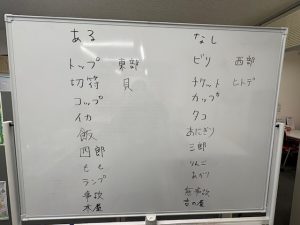 ある なし
トップ 東部 ビリ 西部
切符 貝 チケット ヒトデ
コップ カップ
イカ タコ
飯 おにぎり
四郎 三郎
もも りんご
ランプ あかり
事故 無事故
本屋 古の屋